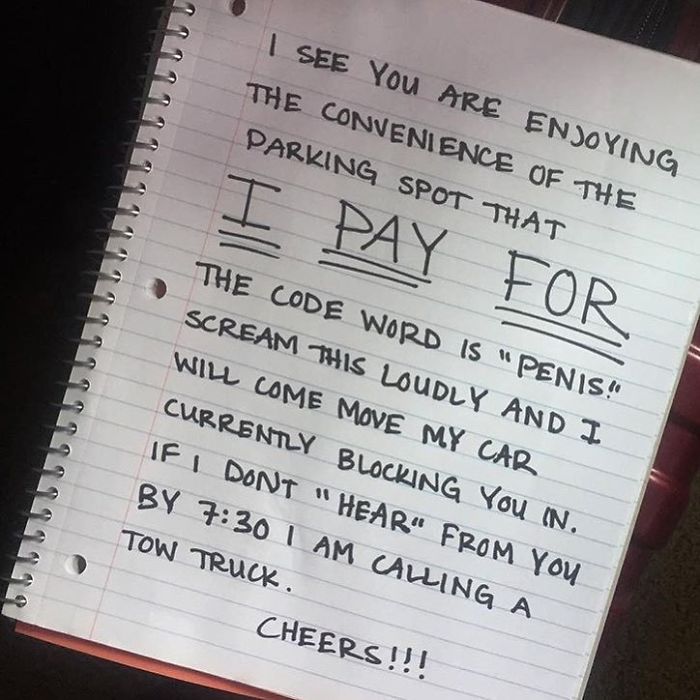 I SEE YOU ARE ENJOYING
THE CONVENIENCE OF THE
PARKING SPOT THAT
I PAY FOR
THE CODE WORD IS "PENIS!"
SCREAM THIS LOUDLY AND I
WILL COME MOVE MY CAR
CURRENTLY BLOCKING YOU IN.
IF I DONT "HEAR" FROM YOU
BY 7:30 I AM CALLING A
TOW TRUCK.
CHEERS!!!